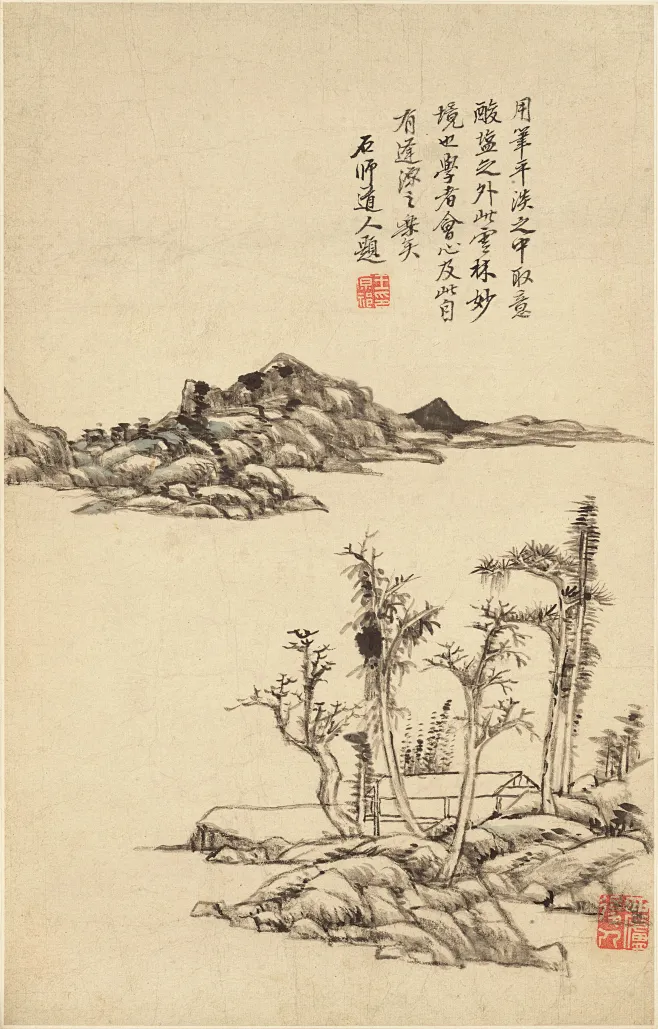 用筆平淡之中取意
酸塩之外此雲林妙
境也學者會心及此自
有逢源之樂矣
石師道人題
王原祁印